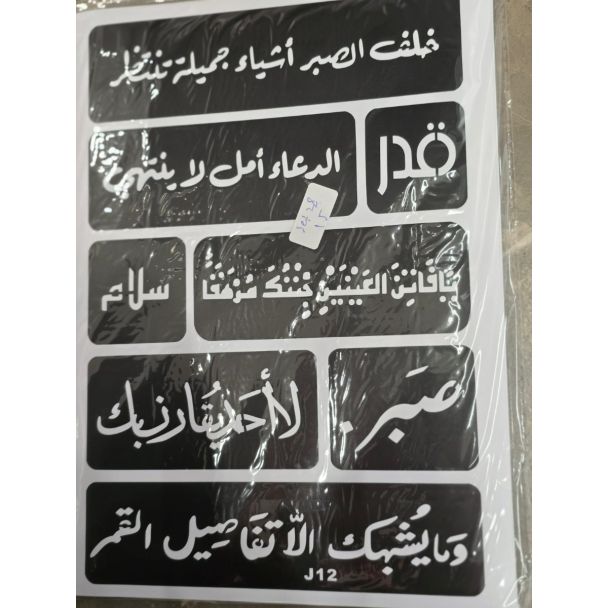 خلف الصبر أشياء جميلة تنتظر
قدر
الدعاء أمل لا ينتهي
يَا فَاتِنَ العَيْنَيْنِ جِئْتُكَ مُرْهَقًا
سلام
صَبر.
لا أحد يُقارن بك
وَما يُشبهك الّا تفَاصِيل القمر
J12